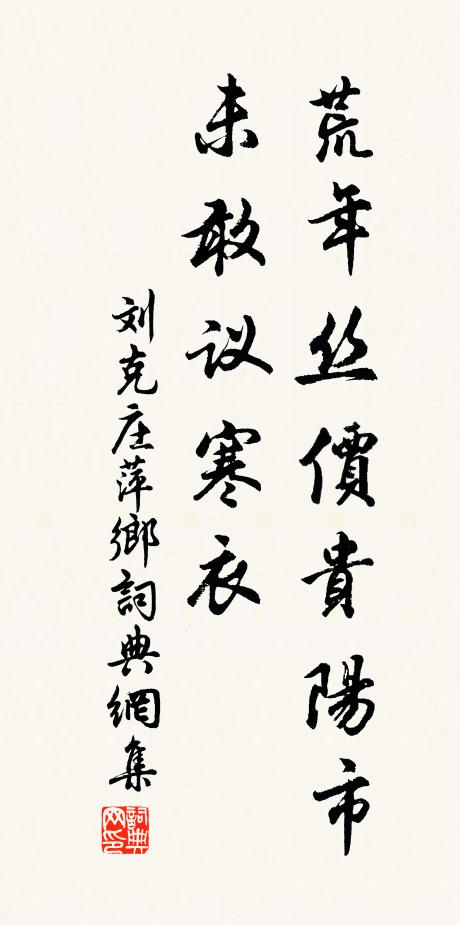 荒年丝價貴陽市
未敢议寒衣
刘克庄萍鄉詞典網集
詞典网印